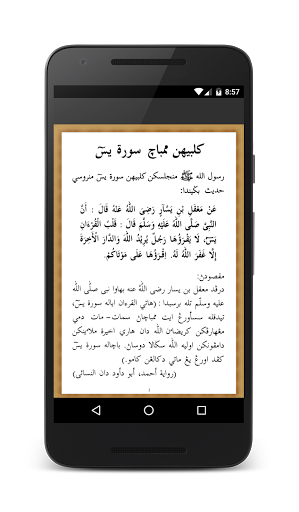 8:57
کلبيهن ممباچ سورة يسٓ
رسول الله ﷺ منجلسکن کلبيهن سورة يسٓ منروسي
حديث بڬيندا:
عَنْ مَعْقِلِ بْنِ يَسَارٍ رَضِيَ اللَّهُ عَنْهُ قَالَ : أَنَّ
النَّبِيَّ صَلَّى اللَّهُ عَلَيْهِ وَسَلَّمَ قَالَ : قَلْبُ الْقُرْءَانِ
يسٓ. لَا يَقْرَؤُهَا رَجُلٌ يُرِيْدُ اللَّهَ وَالدَّارَ الْأَخِرَةَ
إِلَّا غَفَرَ اللَّهُ لَهُ. اِقْرَؤُهَا عَلَى مَوْتَاكُمْ.
مقصودڽ:
درڤد معقل بن يسار رضي اللّه عنه بهاوا نبي صلّى اللّه
عليه وسلّم تله برسبدا : (هاتي القرءان اياله سورة يسٓ،
تيدقله سسأورڠ ايت ممباچاڽ سمات- مات دمي
مڠهارڤکن کريضاءن اللّه دان هاري اخيرة ملاءينکن
دامڤونکن اوليه اللّه سکالا دوساڽ. باچاله سورة يسٓ
کڤد اورڠ يڠ ماتي دکالڠن کامو.)
(رواية أحمد، أبو داود دان النسائي)
١